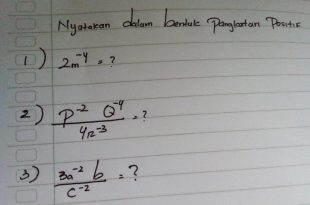 Nyatakan dalam bentuk Pangkatan Positif
1) 2m⁻⁴ = ?
2) P⁻² Q⁻⁴ / 4r⁻³ = ?
3) 3a⁻² b / c⁻² = ?